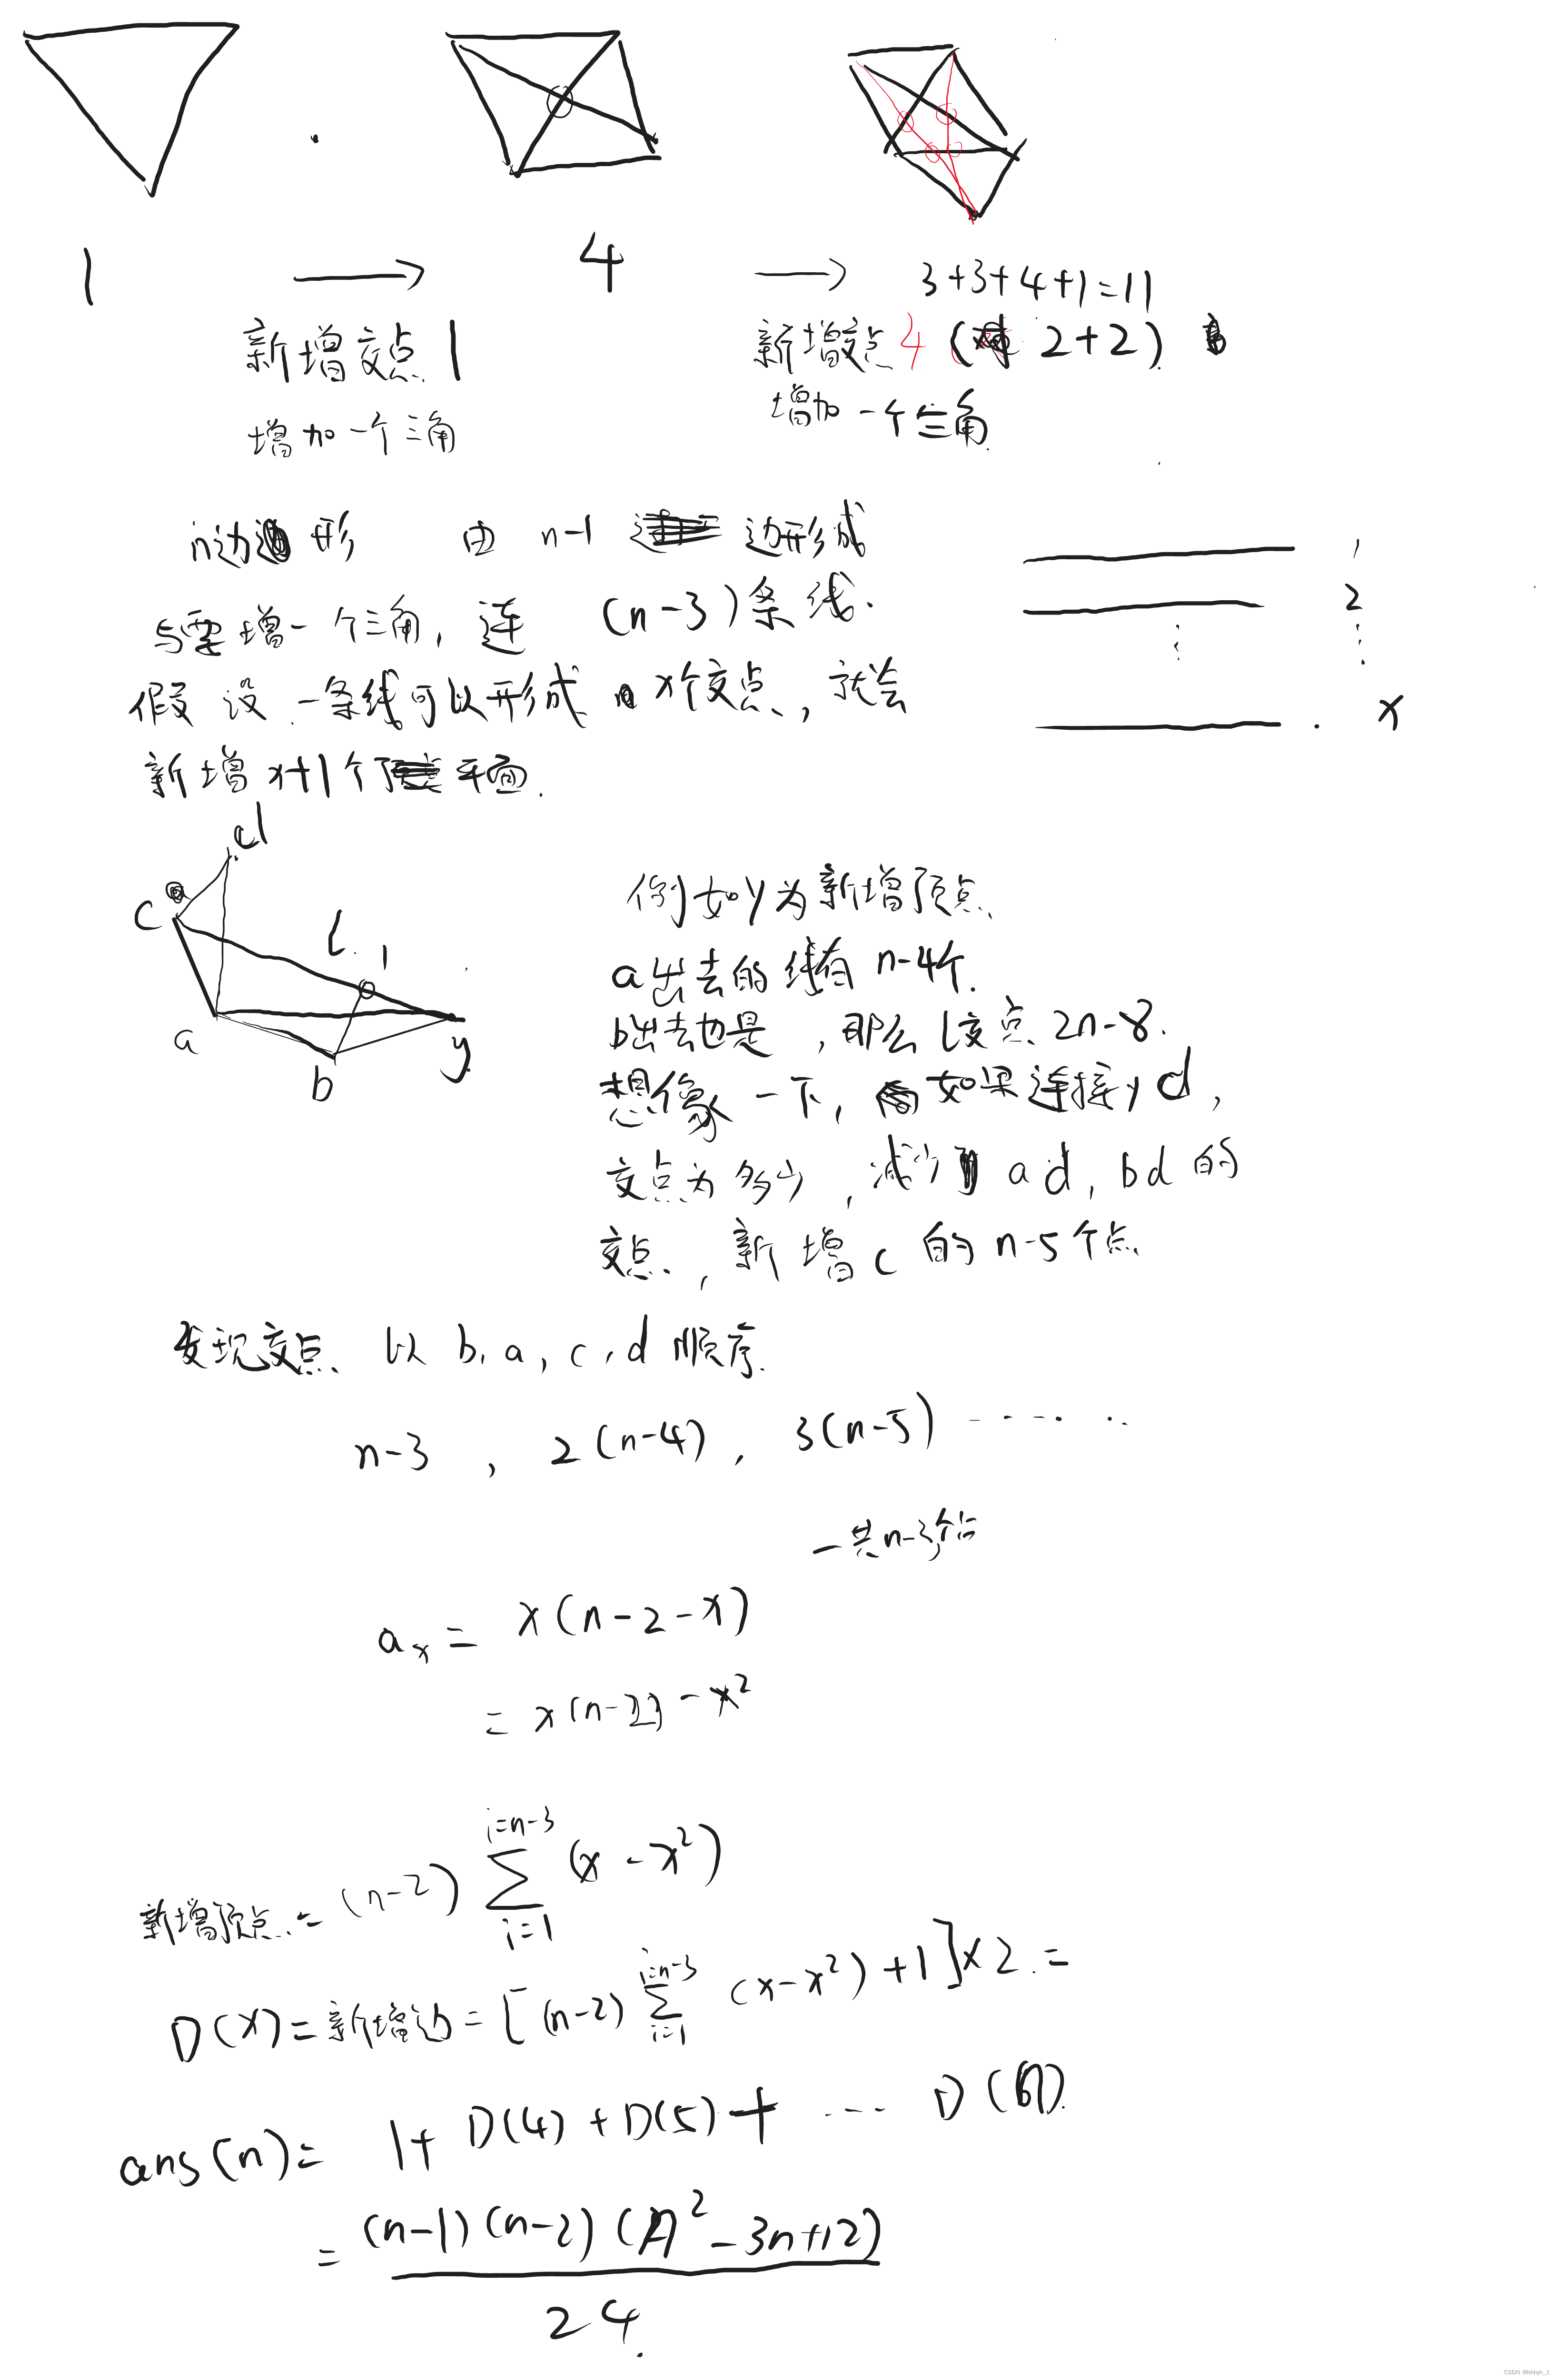 1 → 4 → 3+3+4+1=11
新增交点 1
新增交点 4 (2+2)
增加一个三角
增加一个三角
n边形 由 n-1 边形成
与需增一个三角, 连 (n-3)条线.
假设 一条线可以形成 x个交点, 就会
新增 x+1个 平面.
1
2
⋮
x
d
c
l
1
a
b
y
例如y为新增顶点
a出去的线有 n-4个.
b出去也是, 那么 l交点 2n-8.
想像一下, 如果连接yd,
交点为多少, 减少了 ad, bd的
交点, 新增c的 n-5个点
发现交点 以 b, a, c, d 顺序.
n-3 , 2(n-4), 3(n-5) ......
一共n-3个
a_x = x(n-2-x)
= x(n-2) - x²
新增顶点 = (n-2) ∑_{i=1}^{i=n-3} (x-x²)
D(x)=新增边=[(n-2) ∑_{i=1}^{i=n-3} (x-x²)+1]×2 =
ans(n)= 1+ D(4)+D(5)+ ... D(n).
= (n-1)(n-2)(n²-3n+12)
24.
CSDN @hhhyh_1